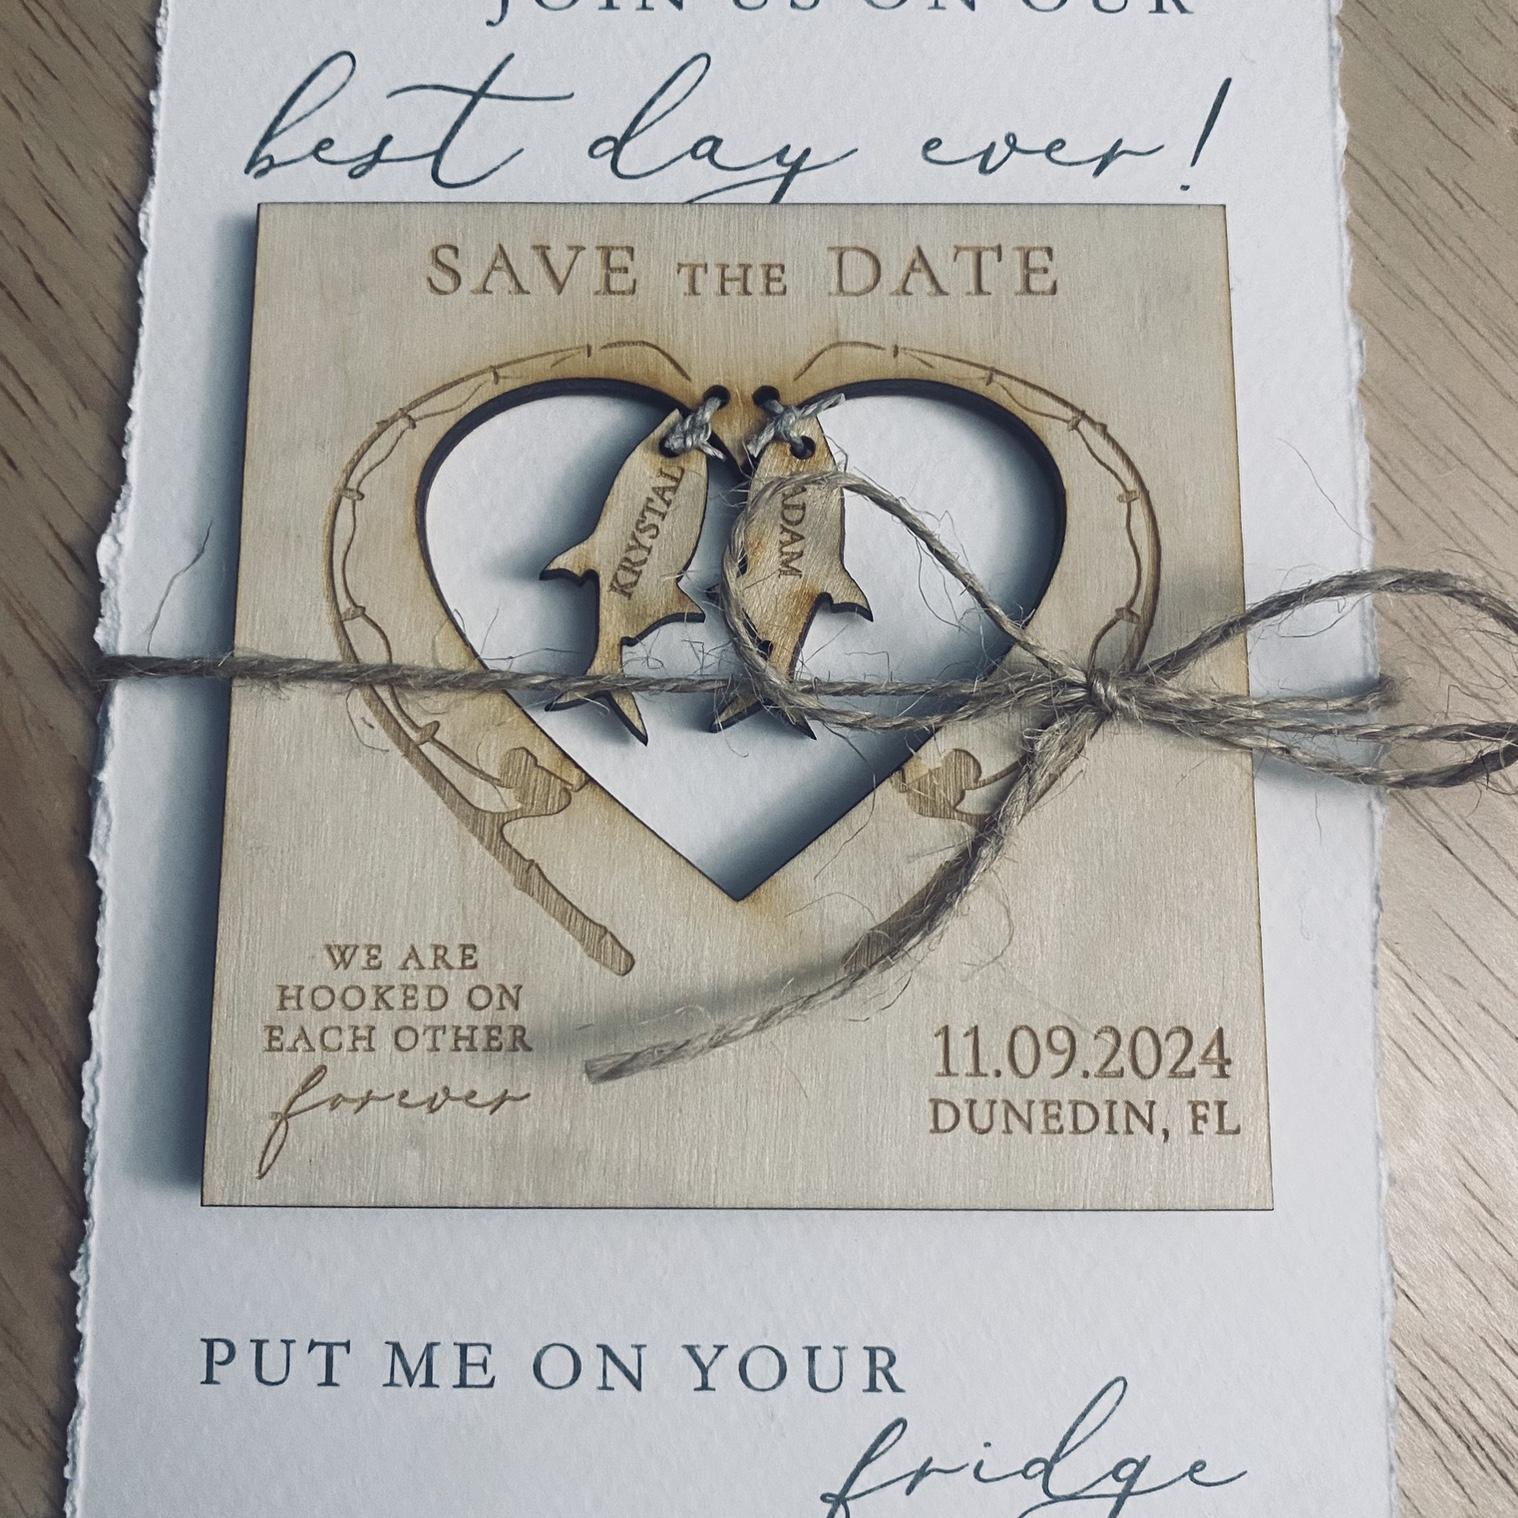 JOIN US ON OUR
best day ever!
SAVE THE DATE
KRYSTAL
ADAM
WE ARE
HOOKED ON
EACH OTHER
forever
11.09.2024
DUNEDIN, FL
PUT ME ON YOUR
fridge